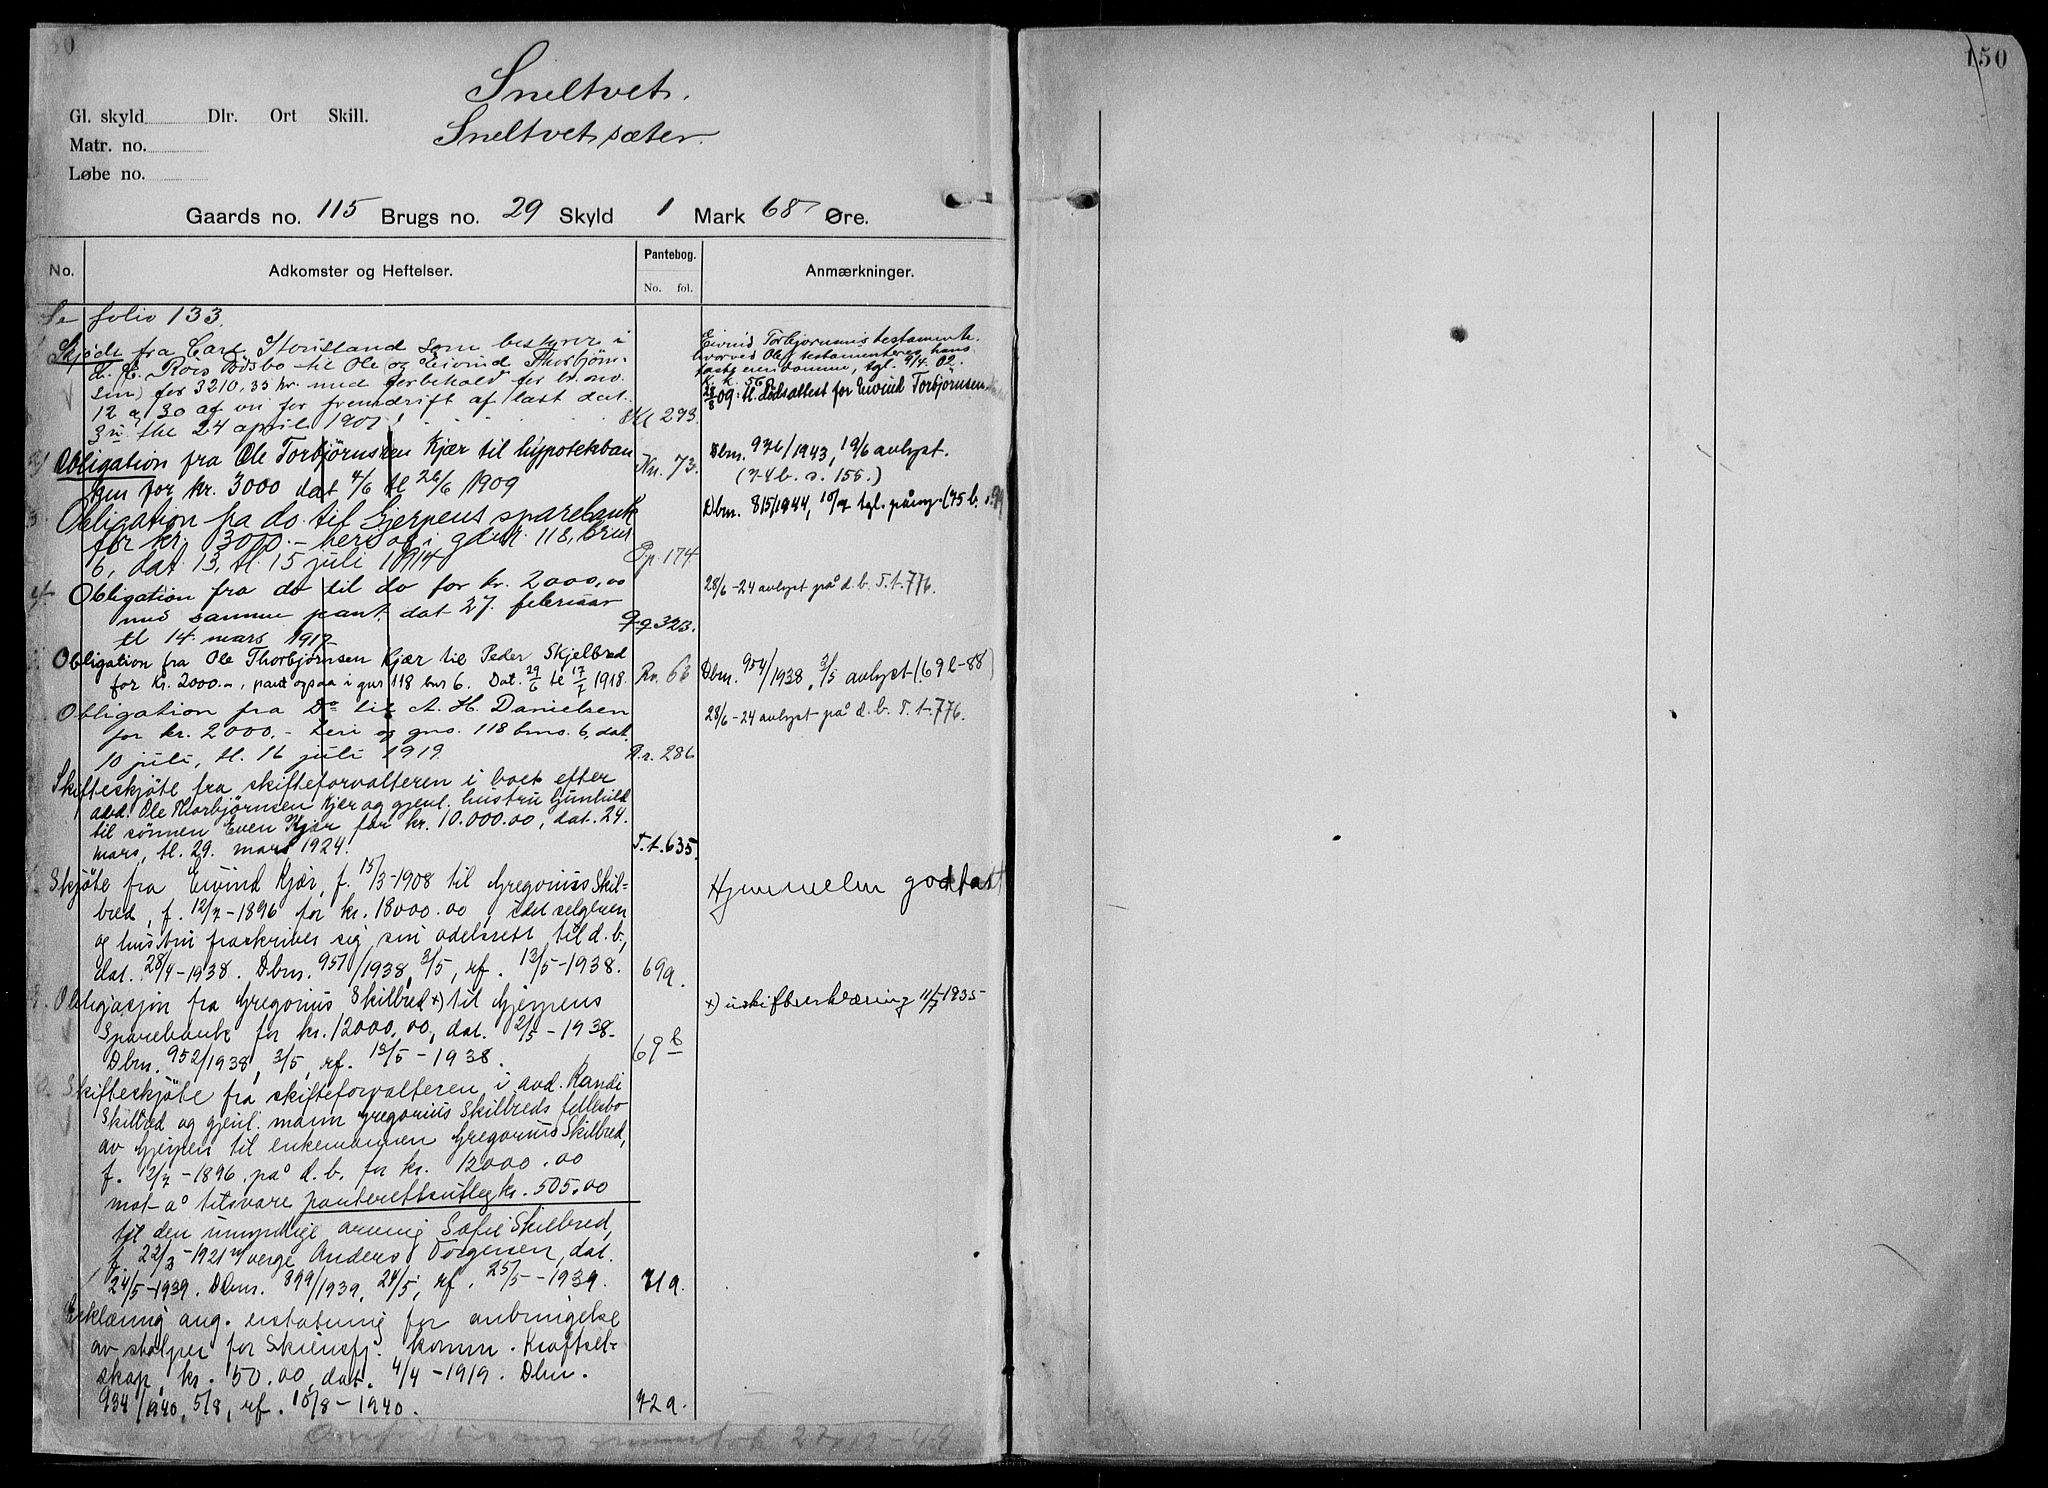 150
Sneltvet.
Sneltvetsæter.
Gl. skyld Dlr. Ort Skill.
Matr. no.
Løbe no.
Gaards no. 115 Brugs no. 29 Skyld 1 Mark 68 Øre.
No. Adkomster og Heftelser. Pantebog. No. fol. Anmærkninger.
Se folio 133.
Skjøde fra Carl Stousland som bestyrer i
Røis dødsbo til Ole og Eivind Thorbjørn-
sen for 3210,35 kr. med forbehold for br. no.
12 a 30 af vei for fremdrift af last dat.
3 thl 24 april 1901. 293.
Eivind Torbjørnsens testamente
hvorved Ole testamenteres hans
faste eiendomme, tgl. 9/4. 02.
28/8 09: tl. dødsattest for Eivind Torbjørnsen
2) Obligation fra Ole Torbjørnsen Kjær til hypotekban
ken for kr. 3000 dat 4/6 tl 26/6 1909 Nn. 73.
Dbnr. 976/1943, 19/6 avlyst.
(74 b. s. 155.)
3. Obligation fra do. til Gjerpens sparebank
for kr. 3000.- hers og i gdnr. 118, brnr
6, dat. 13, tl. 15 juli 1914 Pp. 174
Dbnr. 815/1944, 10/7 tgl. påny (75 b.
4. Obligation fra do til do for kr. 2000,00
med samme pant, dat 27. februar
tl 14. mars 1917 Qq 323.
28/6-24 avlyst på d.b. T.t. 776.
Obligation fra Ole Thorbjørnsen Kjær til Peder Skjelbred
for kr. 2000.-, pant ogsaa i gnr 118 bnr 6. Dat. 29/6 tl 17/7 1918. Rr. 66
Dbnr. 954/1938, 3/5 avlyst (69 b-88)
Obligation fra Do til A. H. Danielsen
for kr. 2000.- heri og gno. 118 bno. 6, dat.
10 juli, tl. 16 juli 1919. R.r. 286
28/6-24 avlyst på d.b. T.t. 776.
Skifteskjøte fra skifteforvalteren i boet efter
avd. Ole Thorbjørnsen Kjær og gjenl. hustru Gunhild
til sønnen Even Kjær for kr. 10.000.00, dat. 24.
mars, tl. 29. mars 1924. T.t. 635.
Skjøte fra Eivind Kjær, f. 15/3-1908 til Gregorius Skil-
bred, f. 12/7-1896 for kr. 18000.00, idet selgeren
og hustru fraskriver sig sin odelsrett til d.b.,
dat. 28/4-1938. Dbnr. 951/1938, 3/5, rf. 13/5-1938. 69a.
Hjemmelen godtatt
9. Obligasjon fra Gregorius Skilbred x) til Gjerpens
Sparebank for kr. 12000,00, dat. 2/5-1938.
Dbnr. 952/1938, 3/5, rf. 13/5-1938. 69 b
x) uskifteerklæring 11/7-1935
Skifteskjøte fra skifteforvalteren i avd. Randi
Skilbred og gjenl. mann Gregorius Skilbreds fellesbo
av Gjerpen til enkemannen Gregorius Skilbred,
f. 12/7-1896 på d.b. for kr. 12000.00
mot å tilsvare panterettsutlegg kr. 505.00
til den umyndige arving Sofie Skilbred,
f. 22/3-1921 m/verge Anders Torgersen, dat.
24/5-1939. Dbnr. 899/1939, 24/5, rf. 25/5-1939. 71a.
Erklæring ang. erstatning for anbringelse
av stolper for Skiensfj. komm. Kraftsel-
skap, kr. 50.00, dat. 4/4-1919. Dbnr.
934/1940, 5/8, rf. 10/8-1940. 72a.